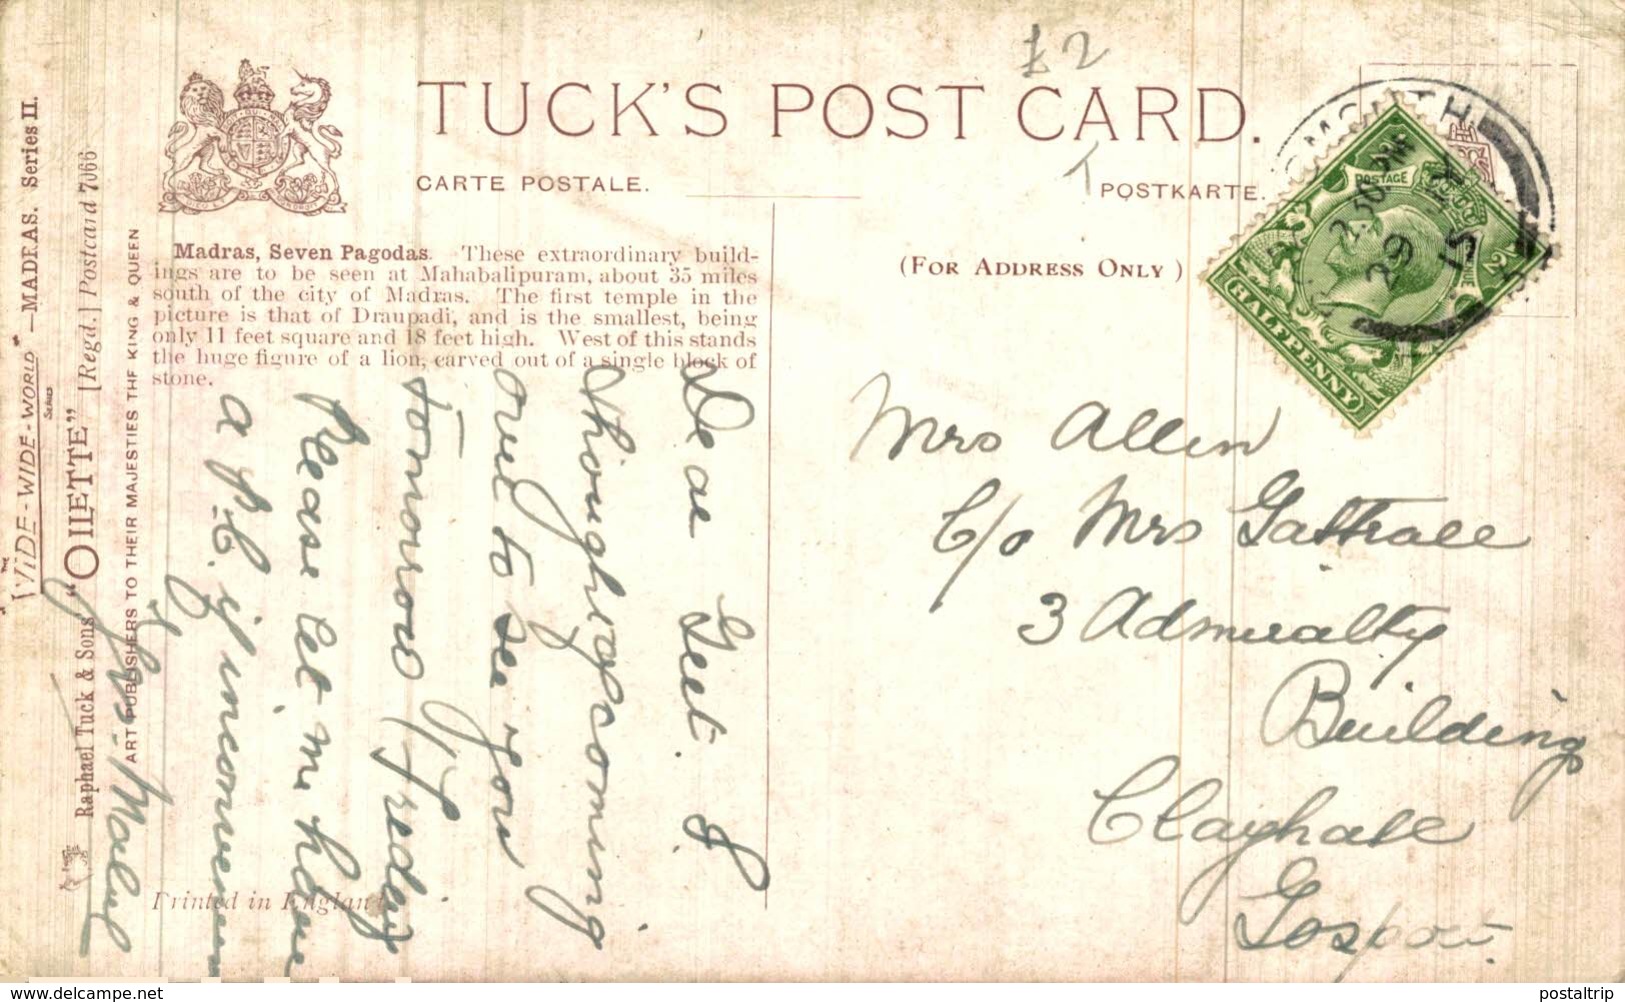 TUCK'S POST CARD.
CARTE POSTALE.
POSTKARTE.
£2
T
(FOR ADDRESS ONLY)
Madras, Seven Pagodas. These extraordinary build-
ings are to be seen at Mahabalipuram, about 35 miles
south of the city of Madras. The first temple in the
picture is that of Draupadi, and is the smallest, being
only 11 feet square and 18 feet high. West of this stands
the huge figure of a lion, carved out of a single block of
stone.
"WIDE-WIDE-WORLD" —MADRAS. Series II.
SERIES
Raphael Tuck & Sons' "OILETTE" [Regd.] Postcard 7066
ART PUBLISHERS TO THEIR MAJESTIES THE KING & QUEEN
Printed in England
Dear Geet. I
though of coming
over to see you
tomorrow Friday
Please let me have
a P.C. if inconvenient
Yrs
Mrs Allen
C/o Mrs Gattrall
3 Admiralty
Building
Clayhall
Gosport.
POSTAGE
HALFPENNY
2.30 PM
29
15
postaltrip
www.delcampe.net